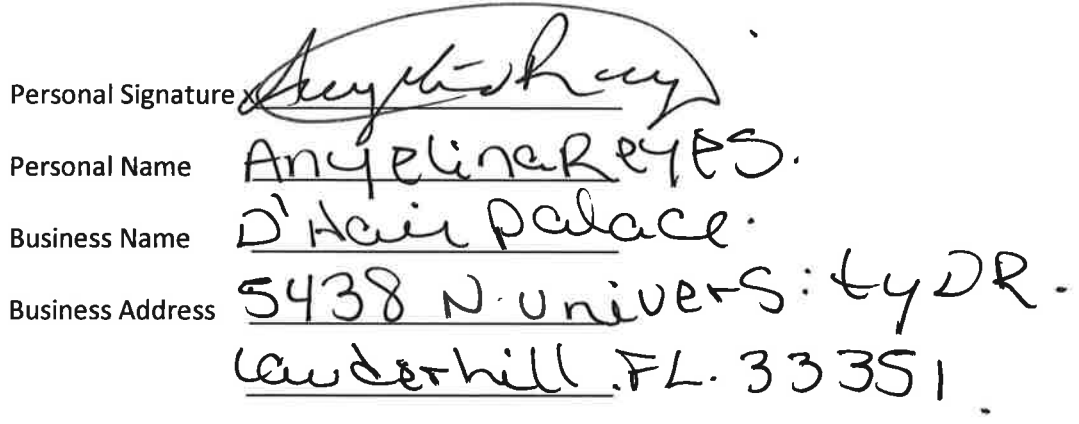 Personal Signature
Personal Name Anyelina Reyes.
Business Name D'Hair Palace.
Business Address 5438 N. University DR.
Lauderhill. FL. 33351.